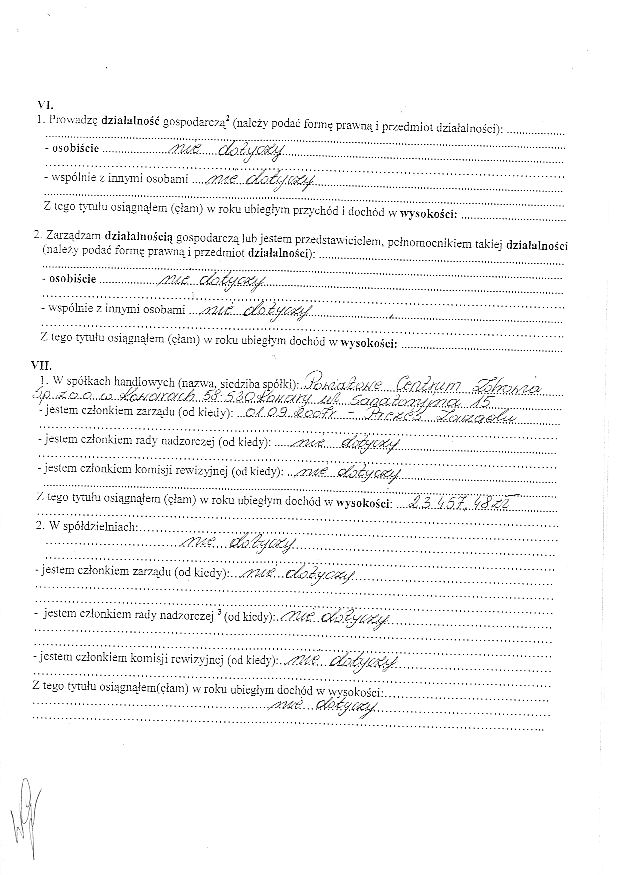 VI.
1. Prowadzę działalność gospodarczą² (należy podać formę prawną i przedmiot działalności): ....................
- osobiście .................... nie dotyczy ....................
- wspólnie z innymi osobami .... nie dotyczy ....................
Z tego tytułu osiągnąłem (ęłam) w roku ubiegłym przychód i dochód w wysokości: ....................
2. Zarządzam działalnością gospodarczą lub jestem przedstawicielem, pełnomocnikiem takiej działalności
(należy podać formę prawną i przedmiot działalności): ....................
- osobiście .................... nie dotyczy ....................
- wspólnie z innymi osobami .... nie dotyczy ....................
Z tego tytułu osiągnąłem (ęłam) w roku ubiegłym dochód w wysokości: ....................
VII.
1. W spółkach handlowych (nazwa, siedziba spółki): Powiatowe Centrum Zdrowia
Sp. z o.o w Kowarach 58-530 Kowary ul. Sanatoryjna 15
- jestem członkiem zarządu (od kiedy): 01.09.2007r - Prezes Zarządu
- jestem członkiem rady nadzorczej (od kiedy): .... nie dotyczy ....................
- jestem członkiem komisji rewizyjnej (od kiedy): .. nie dotyczy ....................
Z tego tytułu osiągnąłem (ęłam) w roku ubiegłym dochód w wysokości: ... 23.457,48 zł
2. W spółdzielniach: ....................
.................... nie dotyczy ....................
- jestem członkiem zarządu (od kiedy): .. nie dotyczy ....................
- jestem członkiem rady nadzorczej ³ (od kiedy): nie dotyczy ....................
- jestem członkiem komisji rewizyjnej (od kiedy): .. nie dotyczy ....................
Z tego tytułu osiągnąłem(ęłam) w roku ubiegłym dochód w wysokości: ....................
.................... nie dotyczy ....................